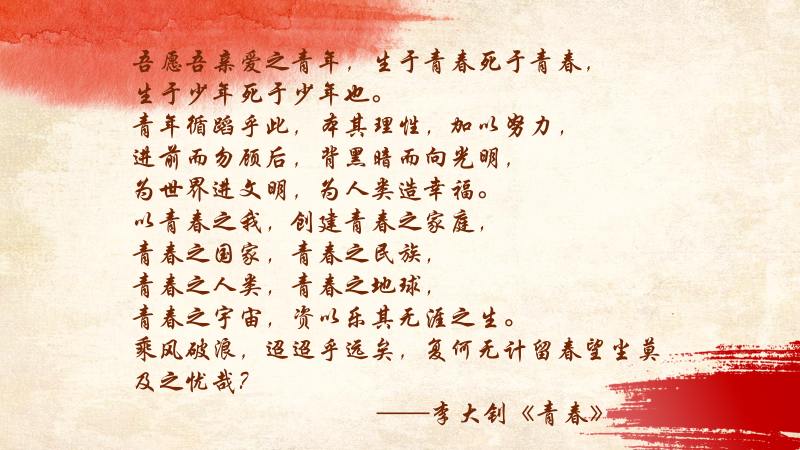 吾愿吾亲爱之青年，生于青春死于青春，
生于少年死于少年也。
青年循蹈乎此，本其理性，加以努力，
进前而勿顾后，背黑暗而向光明，
为世界进文明，为人类造幸福。
以青春之我，创建青春之家庭，
青春之国家，青春之民族，
青春之人类，青春之地球，
青春之宇宙，资以乐其无涯之生。
乘风破浪，迢迢乎远矣，复何无计留春望尘莫
及之忧哉？
——李大钊《青春》